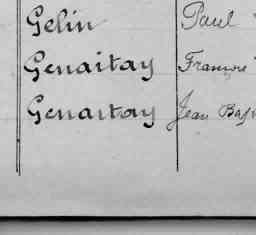 Gelin Paul
Genaitay Françoi
Genaitay Jean Bap